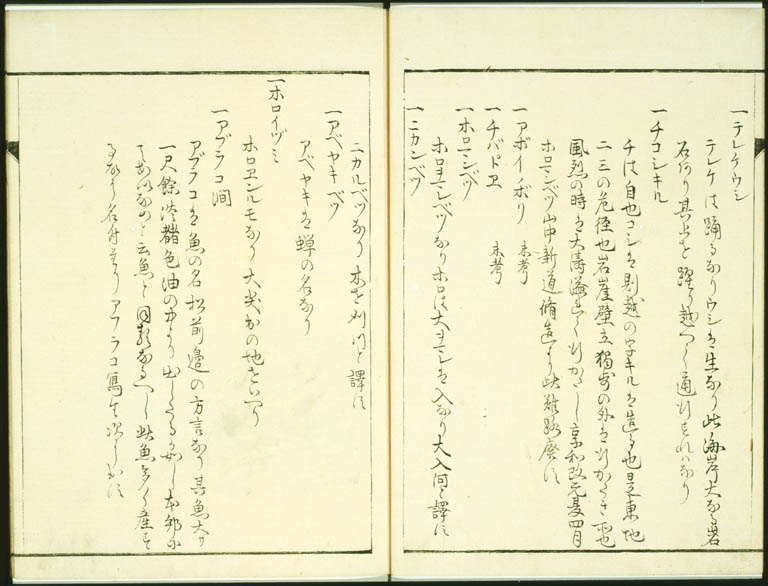 一テレケウシ
テレケは踊るなりウシは生なり此海岸大なる岩
石有り其上を躍り越へし通行すれはなり
一チコシキル
チは自也コシは剔越の字キルは造る也是東地
二三の危径也岩崖壁立獨歩の外は行かたき所也
風烈の時は大濤溢れて行かたし享和改元夏四月
ホロマンベツ山中新道脩造より此難路廃す
一アボイノボリ 未考
一チバドヱ 未考
一ホロマンベツ
ホロヲマンベツなりホロは大ヲマンは入なり大入河と譯す
一ニカンベツ
ニカルベツなり木を刈川と譯す
一アベヤキベツ
アベヤキは蝉の名なり
一ホロイヅミ
ホロヱンルモなり大尖出の地をいへり
一アブラコ澗
アブラコは魚の名松前邉の方言なり其魚大サ
一尺餘淡赭色油の中より出したるか如し本邦に
てあいなめと云魚と同類なるへし此魚多く産す
るなり名付たりアブラコ寫生次に出す